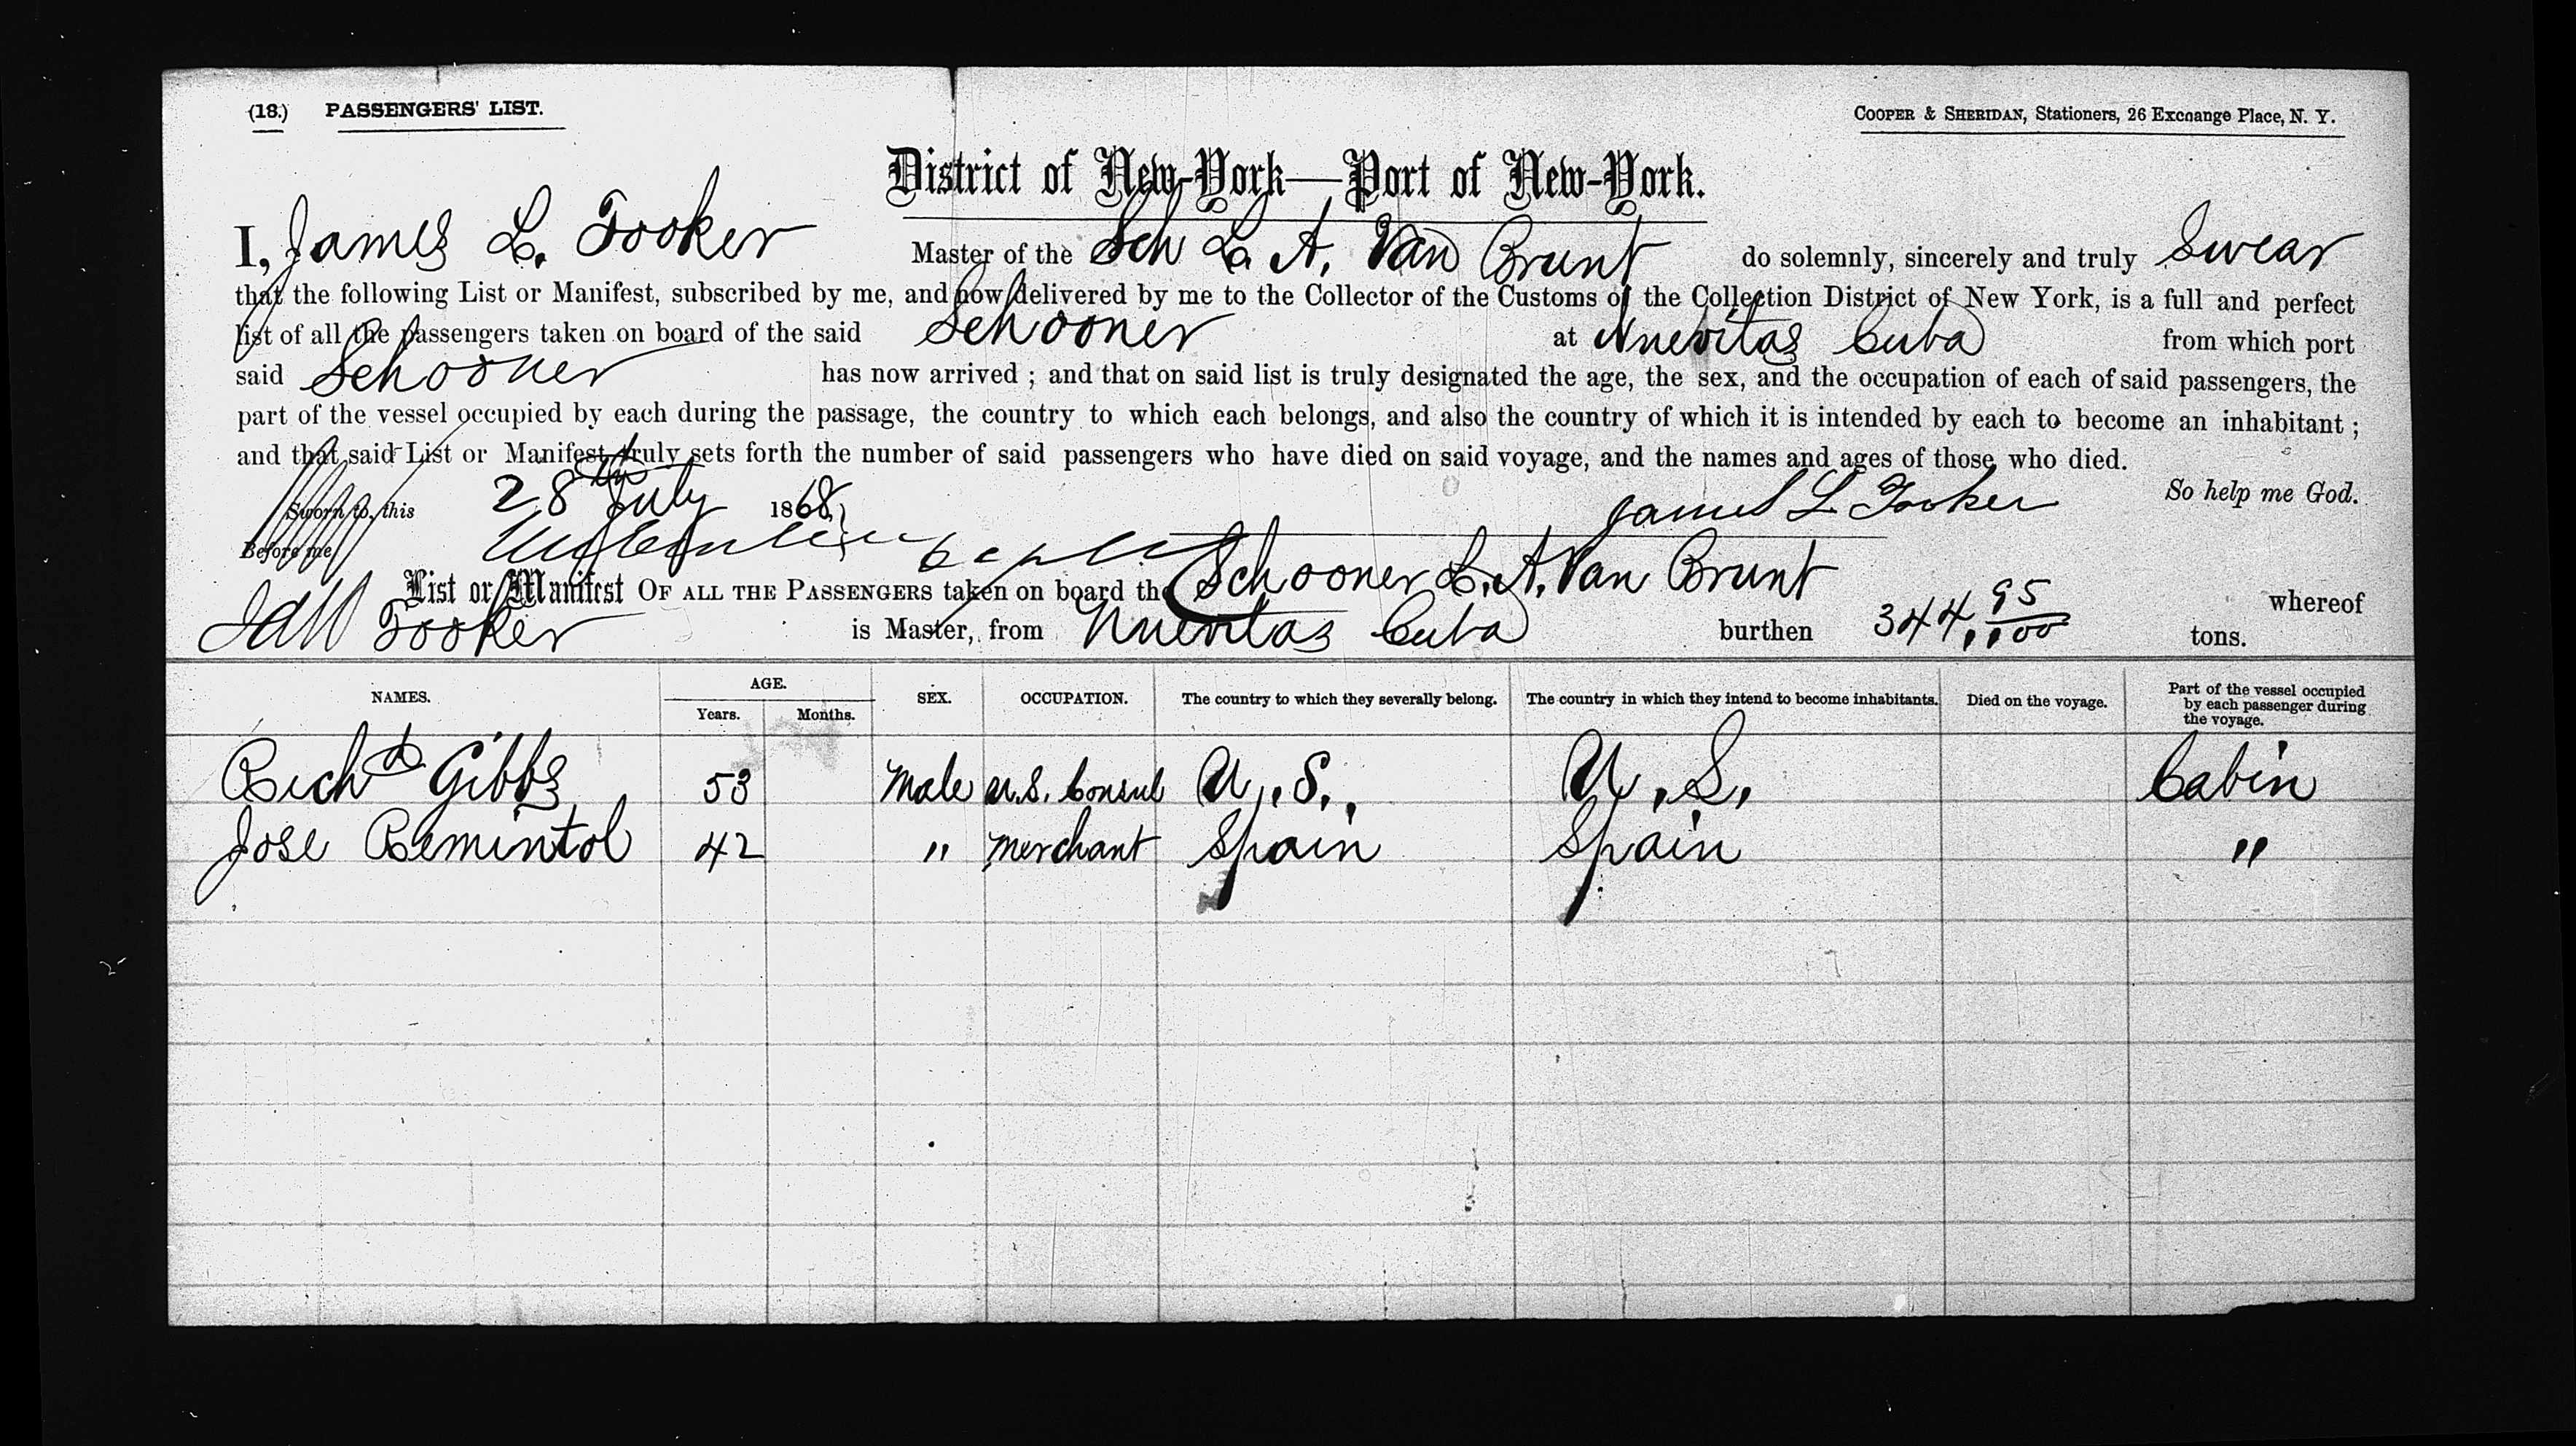 (18.) PASSENGERS' LIST.
COOPER & SHERIDAN, Stationers, 26 Excnange Place, N. Y.
District of New-York—Port of New-York.
I, James L. Tooker Master of the Sch L. A. Van Brunt do solemnly, sincerely and truly Swear
that the following List or Manifest, subscribed by me, and now delivered by me to the Collector of the Customs of the Collection District of New York, is a full and perfect
list of all the passengers taken on board of the said Schooner at Nuevitas Cuba from which port
said Schooner has now arrived ; and that on said list is truly designated the age, the sex, and the occupation of each of said passengers, the
part of the vessel occupied by each during the passage, the country to which each belongs, and also the country of which it is intended by each to become an inhabitant ;
and that said List or Manifest truly sets forth the number of said passengers who have died on said voyage, and the names and ages of those who died.
So help me God.
Sworn to, this 28th July 1868, James L Tooker
Before me,
List or Manifest OF ALL THE PASSENGERS taken on board the Schooner L. A. Van Brunt whereof
Tooker is Master, from Nuevitas Cuba burthen 344, 95/100 tons.
NAMES. AGE. Years. Months. SEX. OCCUPATION. The country to which they severally belong. The country in which they intend to become inhabitants. Died on the voyage. Part of the vessel occupied by each passenger during the voyage.
Richd Gibbs 53 Male U.S. Consul U.S. U.S. Cabin
Jose Remintol 42 " Merchant Spain Spain "